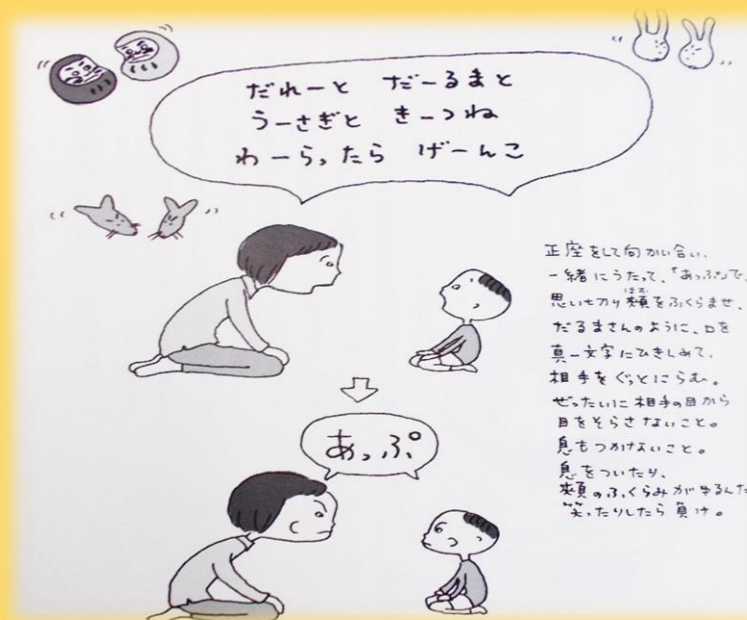 だれーと だーるまと
うーさぎと きーつね
わーらったら げーんこ
正座をして向かい合い、
一緒にうたって、「あっぷ」で、
思い切り頬をふくらませ、
だるまさんのように、口を
真一文字にひきしめて、
相手をぐっとにらむ。
ぜったいに相手の目から
目をそらさないこと。
息もつかないこと。
息をついたり、
頬のふくらみがゆるんだ
笑ったりしたら負け。
あっぷ